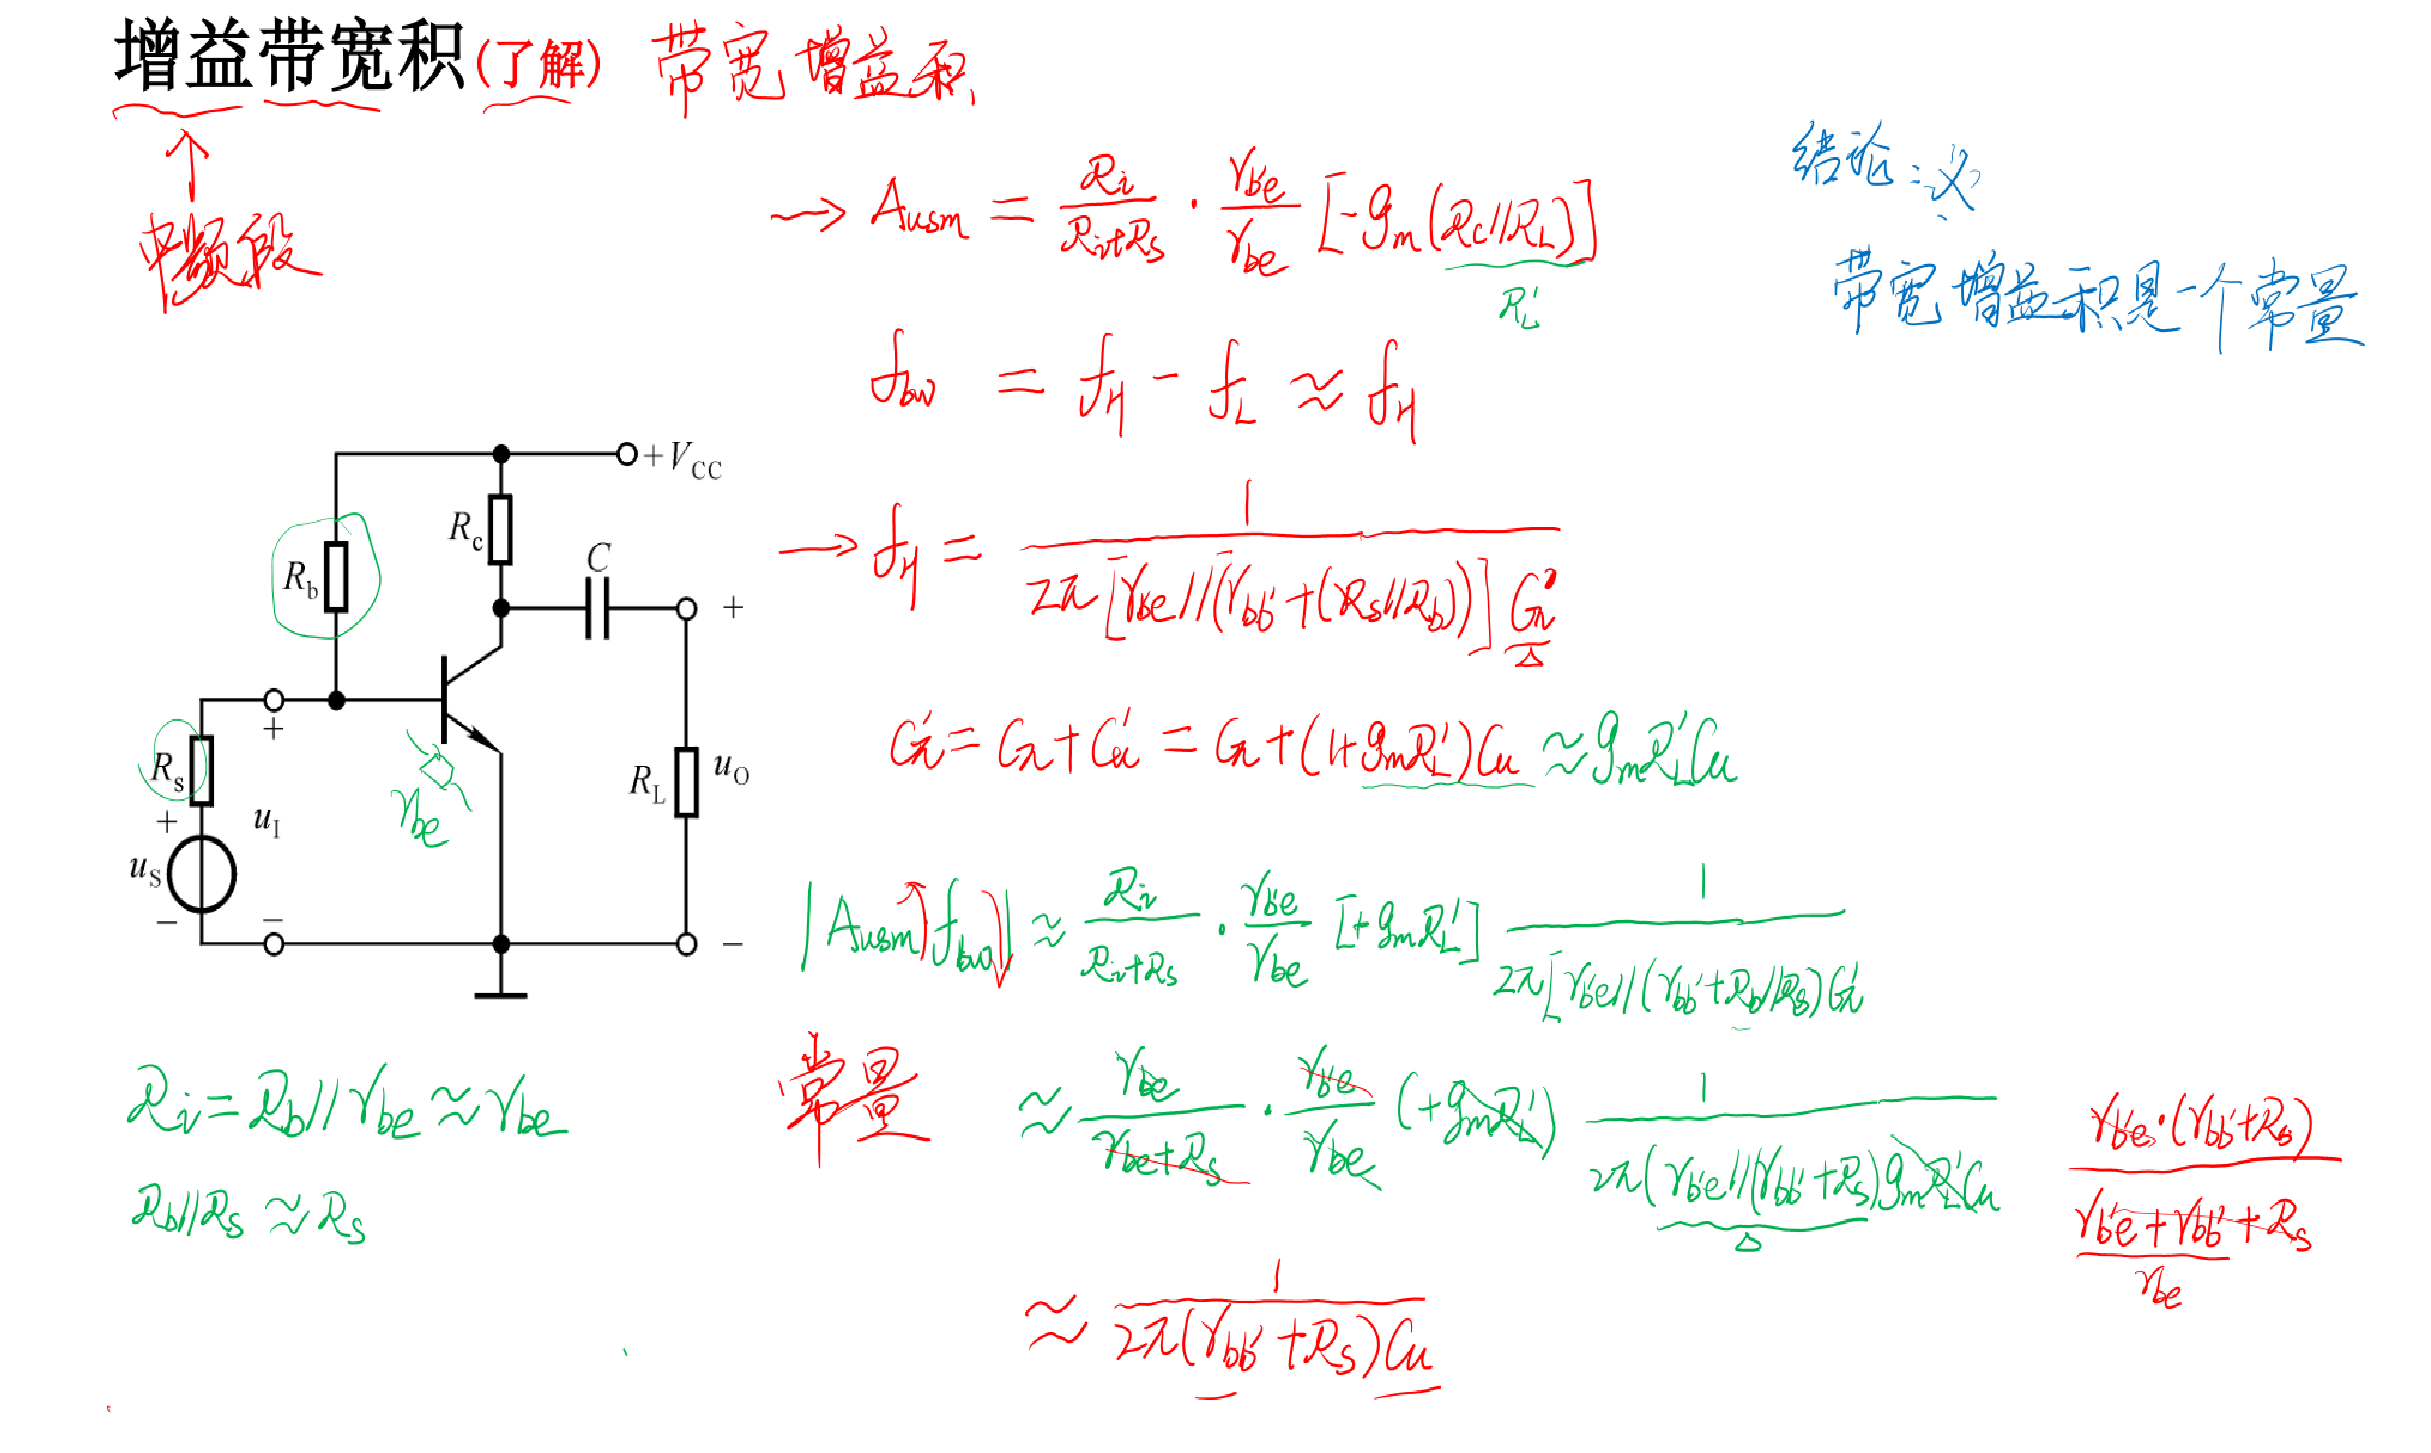 增益带宽积(了解) 带宽增益积
↑
中频段
结论:
带宽增益积是一个常量
→ Ausm = Ri/(Ri+Rs) · rb'e/rbe [-gm(Rc//RL)]
RL'
fbw = fH - fL ≈ fH
→ fH = 1/(2π[rb'e//(rbb'+(Rs//Rb))]Cπ')
Cπ' = Cπ + Cμ' = Cπ + (1+gmRL')Cμ ≈ gmRL'Cμ
+VCC
Rc
Rb
C
+
+
Rs
rbe
RL
uO
+
uI
uS
-
-
-
|Ausm fbw| ≈ Ri/(Ri+Rs) · rb'e/rbe [+gmRL'] 1/(2π[rb'e//(rbb'+Rb//Rs)Cπ'
Ri = Rb//rbe ≈ rbe
Rb//Rs ≈ Rs
常量
≈ rbe/(rbe+Rs) · rb'e/rbe (+gmRL') 1/(2π(rb'e//(rbb'+Rs)gmRL'Cμ
rb'e·(rbb'+Rs)/(rb'e+rbb'+Rs)
rbe
≈ 1/(2π(rbb'+Rs)Cμ